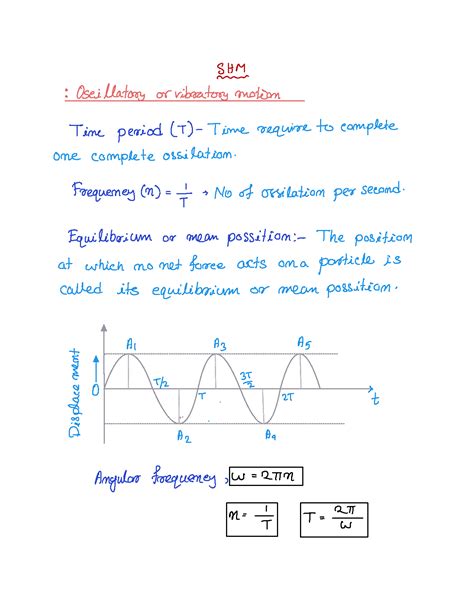 SHM
: Oscillatory or vibratory motion
Time period (T) - Time require to complete
one complete ossilation.
Frequency (n) = 1/T → No of ossilation per second.
Equilibrium or mean possition:- The position
at which no net force acts on a particle is
called its equilibrium or mean possition.
A1 A3 A5
Displacement
0 T/2 T 3T/2 2T t
A2 A4
Angular frequency, ω = 2πn
n = 1/T T = 2π/ω